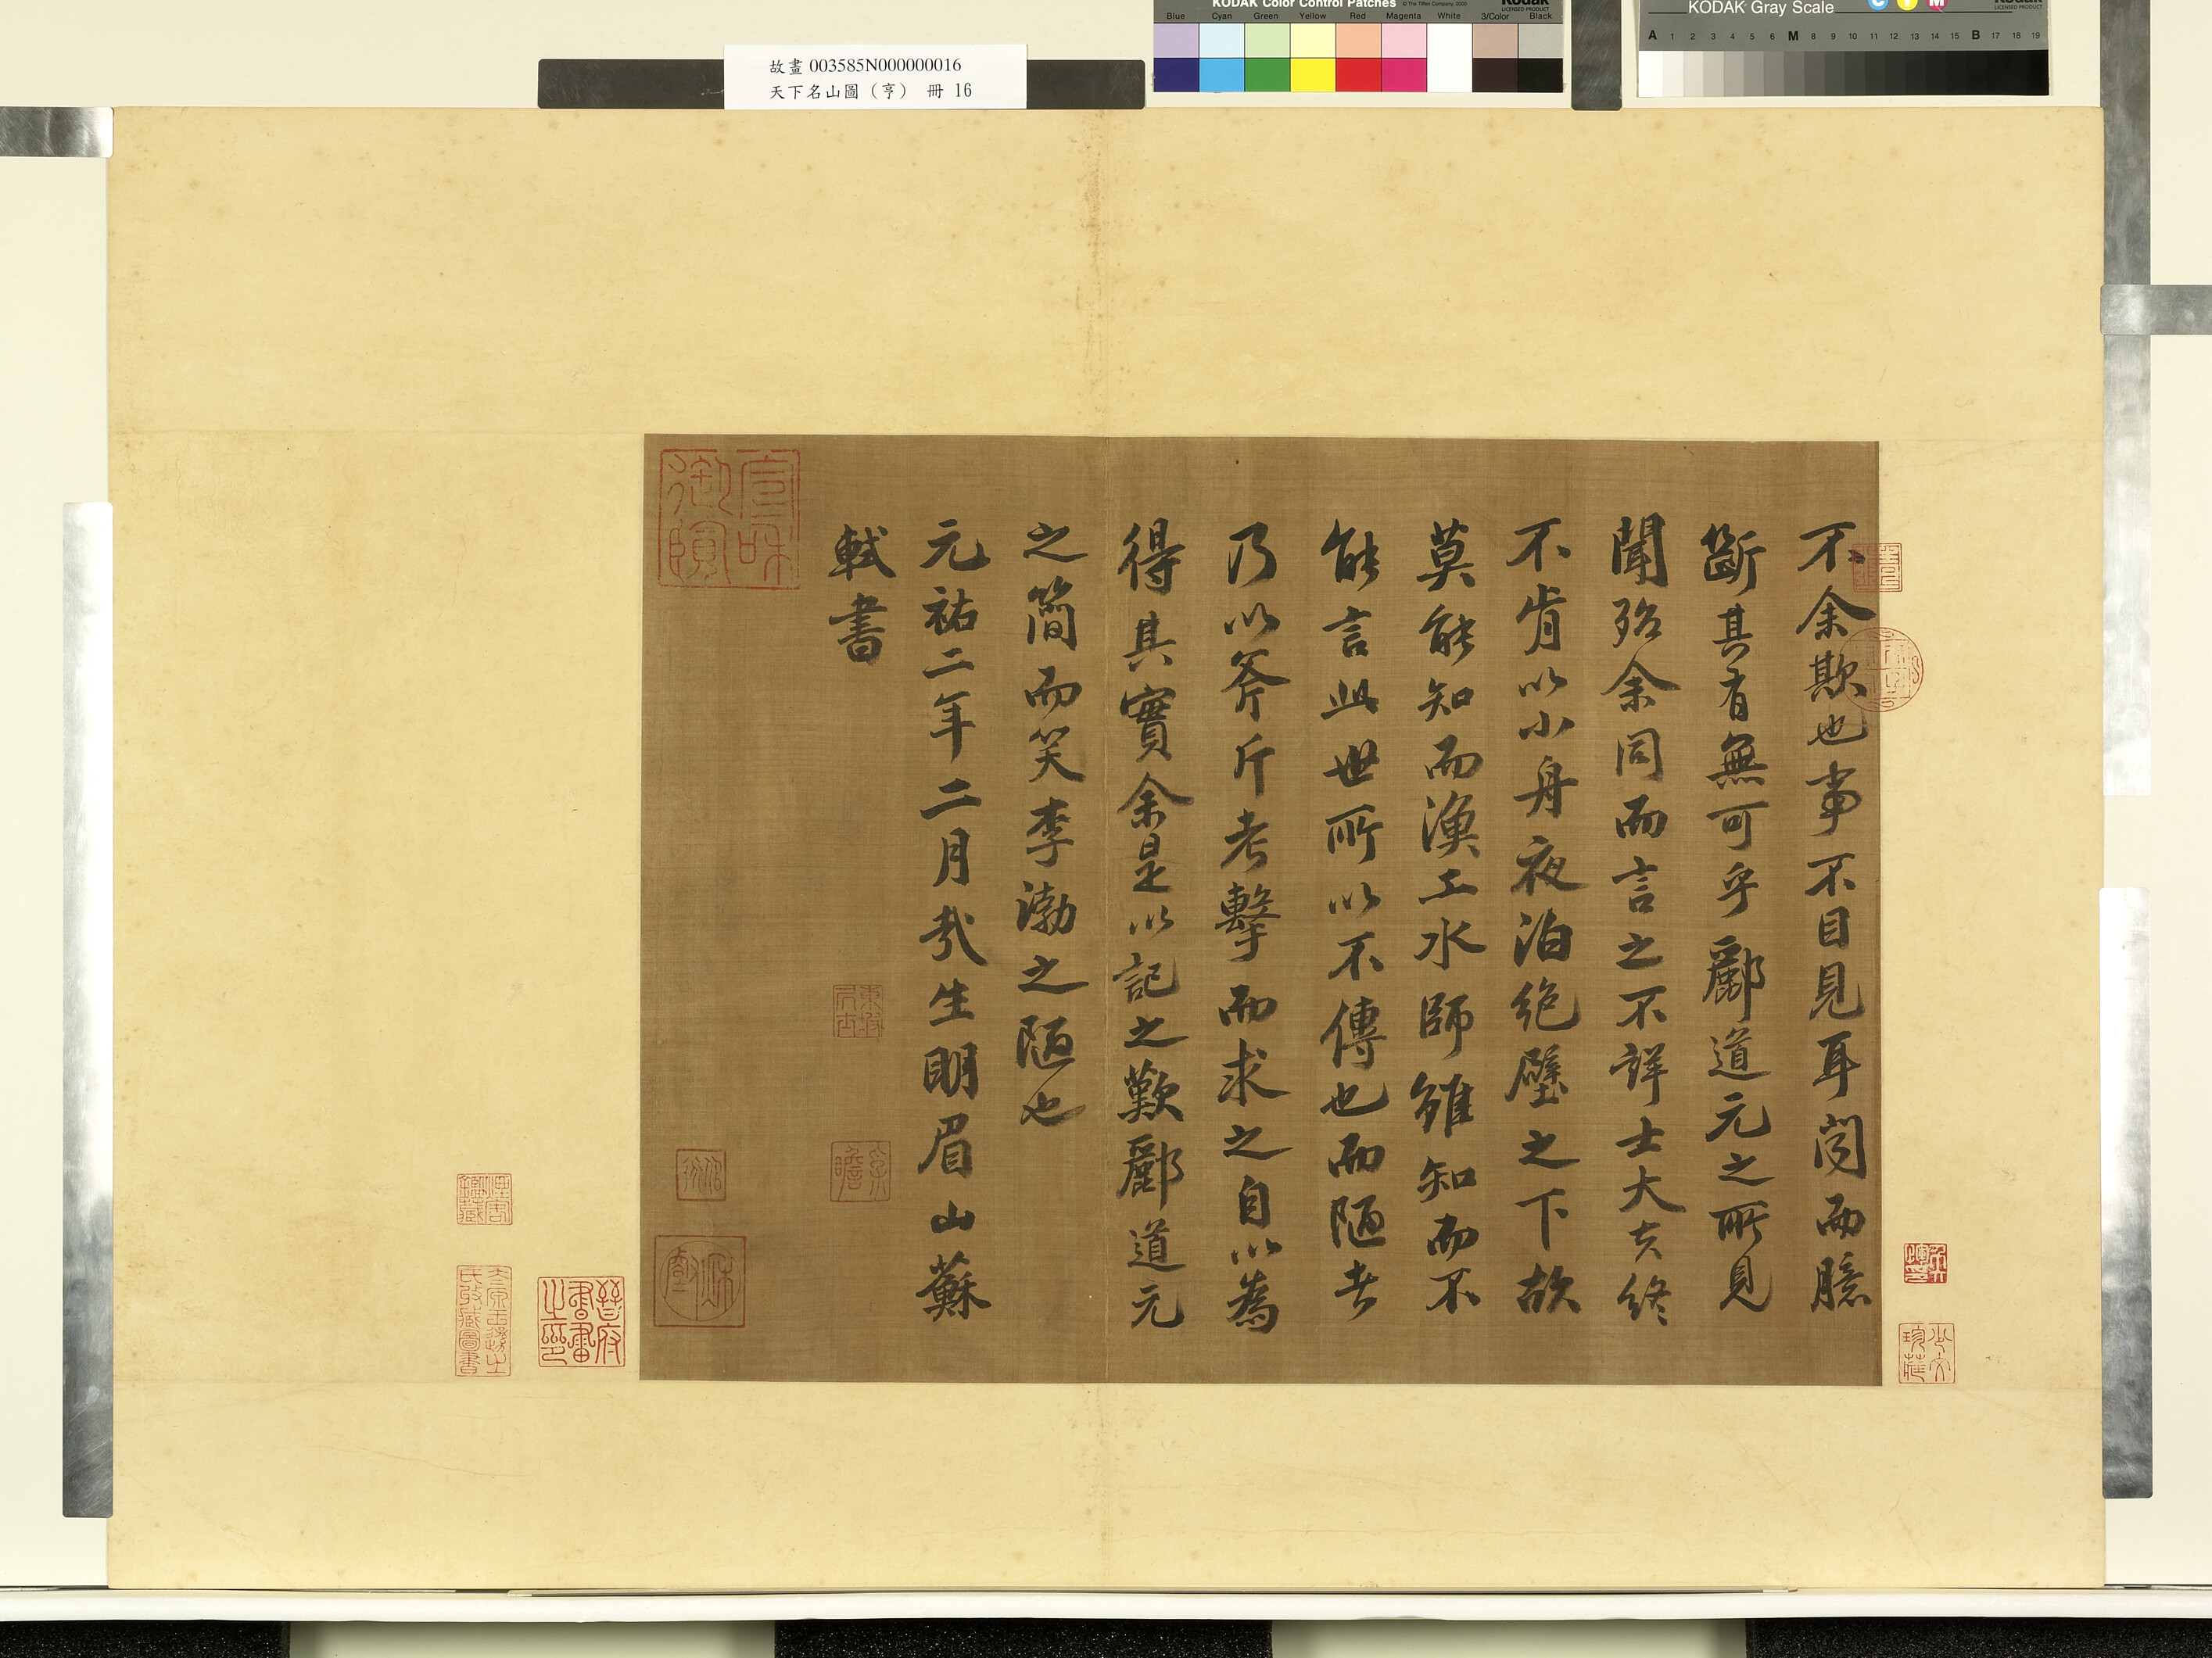 KODAK Color Control Patches © The Tiffen Company, 2000 Kodak
LICENSED PRODUCT
Blue Cyan Green Yellow Red Magenta White 3/Color Black
KODAK Gray Scale C Y M Kodak
LICENSED PRODUCT
A 1 2 3 4 5 6 M 8 9 10 11 12 13 14 15 B 17 18 19
故畫 003585N000000016
天下名山圖（亨） 冊 16
不余欺也事不目見耳聞而臆
斷其有無可乎酈道元之所見
聞殆余同而言之不詳士大夫終
不肯以小舟夜泊絶壁之下故
莫能知而漁工水師雖知而不
能言此世所以不傳也而陋者
乃以斧斤考擊而求之自以為
得其實余是以記之歎酈道元
之簡而笑李渤之陋也
元祐二年二月哉生明眉山蘇
軾書
宣和御寶
子瞻
晉府書畫之印